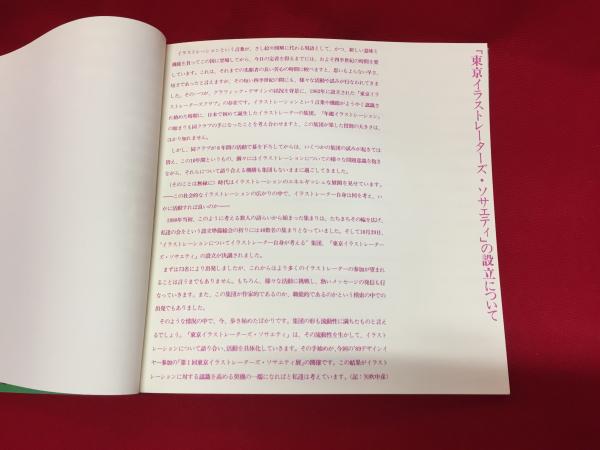 『東京イラストレーターズ・ソサエティ』の設立について
イラストレーションという言葉が、さし絵や図解に代わる用語として、かつ、新しい意味と
機能を負ってこの国に登場してから、今日の定着を得るまでには、およそ四半世紀の時間を要
しています。これは、それまでの先駆者の長い苦心の時間に較べますと、思いもよらない早さ、
短さであったと言えますが、その短い四半世紀の間にも、様々な活動や試みが行なわれてきま
した。その一つが、グラフィック・デザインの状況を背景に、1965年に設立された「東京イラ
ストレーターズクラブ」の存在です。イラストレーションという言葉や機能がようやく認識さ
れ始めた時期に、日本で初めて誕生したイラストレーターの集団、『年鑑イラストレーション』
の始まりも同クラブの手になったことを考え合わせますと、この集団が果した役割の大きさは、
はかり知れません。
しかし、同クラブが6年間の活動で幕を下ろしてからは、いくつかの集団の試みが起きては
消え、この10年間というもの、個々にはイラストレーションについての様々な問題意識を抱き
ながら、それらについて語り合える機構も集団もないままに過してきました。
(そのこととは無縁に)時代はイラストレーションのエネルギッシュな展開を見せています。
――この社会的なイラストレーションの広がりの中で、イラストレーター自身は何を考え、い
かに活動すれば良いのか――
1988年当初、このように考える数人の語らいから始まった集まりは、たちまちその輪を広げ、
私達の会をという設立準備総会の折りには40数名の集まりとなっていました。そして10月20日、
"イラストレーションについてイラストレーター自身が考える"集団、「東京イラストレーター
ズ・ソサエティ」の設立が決議されました。
まずは73名により出発しましたが、これからはより多くのイラストレーターの参加が望まれ
ることは言うまでもありません。もちろん、様々な活動に挑戦し、熱いメッセージの発信も行
なっていきます。また、この集団が作家的であるのか、職能的であるのかという模索の中での
出発でもありました。
そのような情況の中で、今、歩き始めたばかりです。集団の形も流動性に満ちたものと言え
るでしょう。「東京イラストレーターズ・ソサエティ」は、その流動性を生かして、イラスト
レーションについて語り合い、活動を具体化していきます。その手始めが、今回の'89デザインイ
ヤー参加の「第1回東京イラストレーターズ・ソサエティ展」の開催です。この結果がイラスト
レーションに対する認識を高める契機の一端になればと私達は考えています。(記：矢吹申彦)